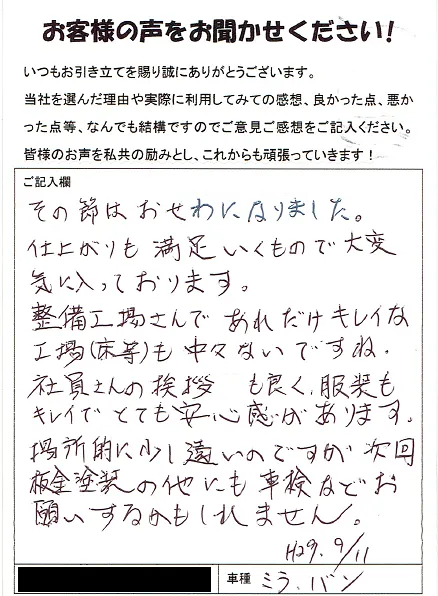 お客様の声をお聞かせください!
いつもお引き立てを賜り誠にありがとうございます。
当社を選んだ理由や実際に利用してみての感想、良かった点、悪か
った点等、なんでも結構ですのでご意見ご感想をご記入ください。
皆様のお声を私共の励みとし、これからも頑張っていきます!
ご記入欄
その節はおせわになりました。
仕上がりも満足いくもので大変
気に入っております。
整備工場さんであれだけキレイな
工場(床等)も中々ないですね。
社員さんの挨拶も良く、服装も
キレイでとても安心感があります。
場所的に少し遠いのですが次回
板金塗装の他にも車検などお
願いするかもしれません。
H29.9/11
車種 ミラ、バン